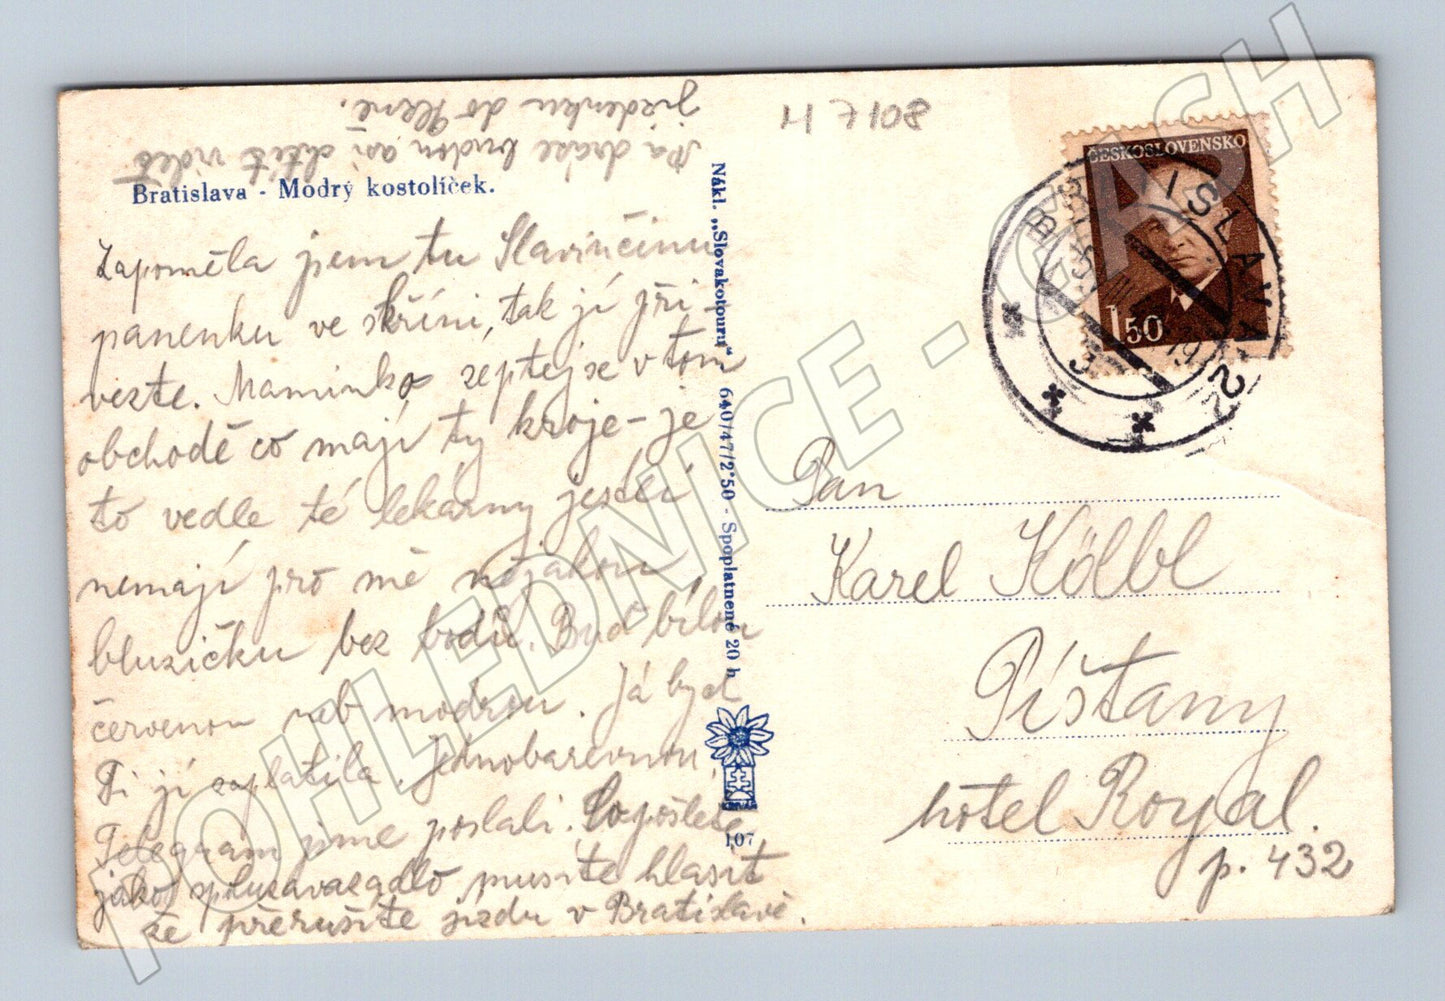 H 7108
Na dráze budou asi chtít viděť
jízdenku do Plzně.
Bratislava - Modrý kostolíček.
Zapoměla jsem tu Slavinčinu
panenku ve skříni, tak jí při-
vezte. Maminko zeptej se v tom
obchodě co mají ty kroje - je
to vedle té lékárny jestli
nemají pro mě nějakou
bluzičku bez bodů. Buď bílou
červenou neb modrou. Já bych
Ti jí zaplatila. Jednobarevnou,
Telegram jsme poslali. Co pošlete
jako spoluzavazadlo musíte hlasit
že přerušíte jízdu v Bratislavě.
Nákl. „Slovakotouru" 640/47/2·50 - Spoplatnené 20 h
107
ČESKOSLOVENSKO
1 50
BRATISLAVA 2
Pan
Karel Kölbl
Píšťany
hôtel Royal.
p. 432
POHLEDNICE - GASH